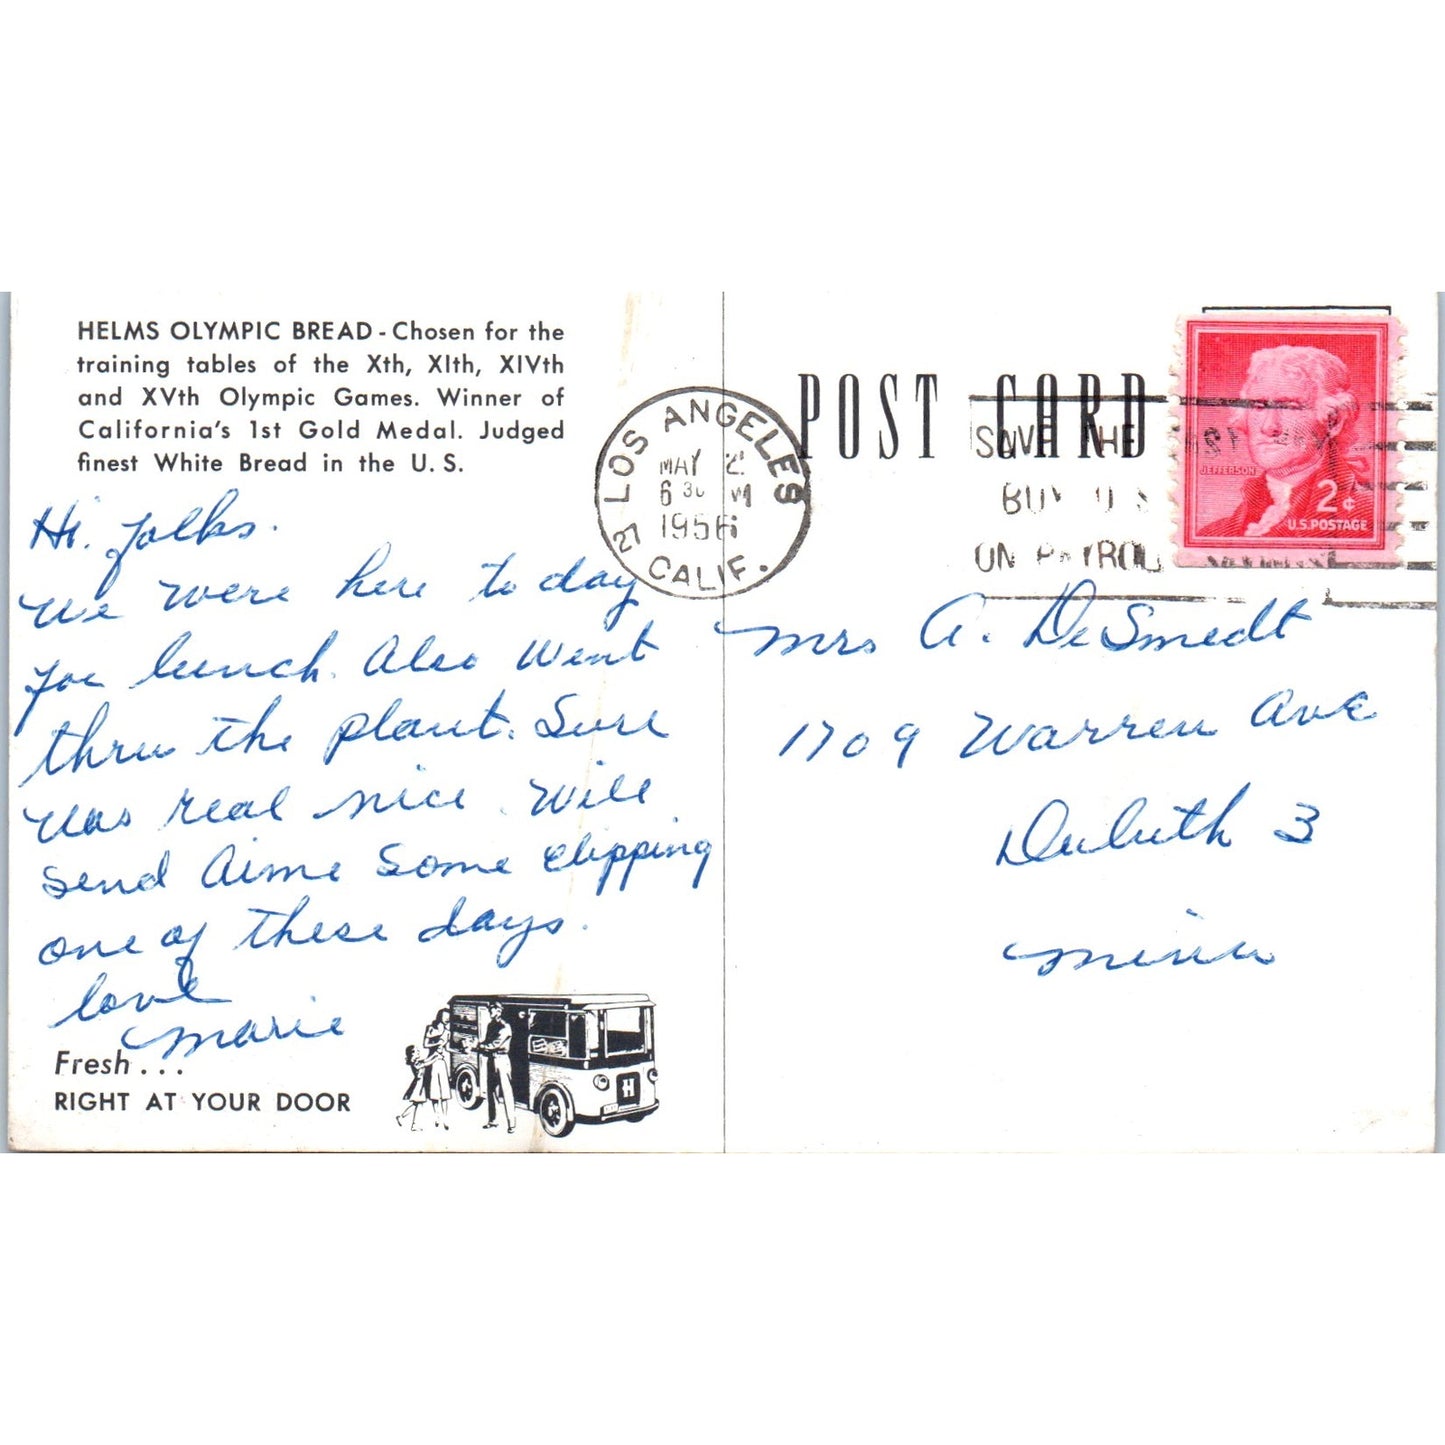 HELMS OLYMPIC BREAD - Chosen for the
training tables of the Xth, XIth, XIVth
and XVth Olympic Games. Winner of
California's 1st Gold Medal. Judged
finest White Bread in the U. S.
Hi. folks.
We were here to day
for lunch. Also went
thru the plant. Sure
was real nice. Will
send Aime some clipping
one of these days.
love
Marie
Fresh...
RIGHT AT YOUR DOOR
H
LOS ANGELES
MAY 2
6 30 PM
1956
27 CALIF.
POST CARD
SAVE THE
BUY U S
ON PAYROLL
JEFFERSON
2¢
U.S. POSTAGE
Mrs A. DeSmedt
1709 Warren Ave
Duluth 3
Minn